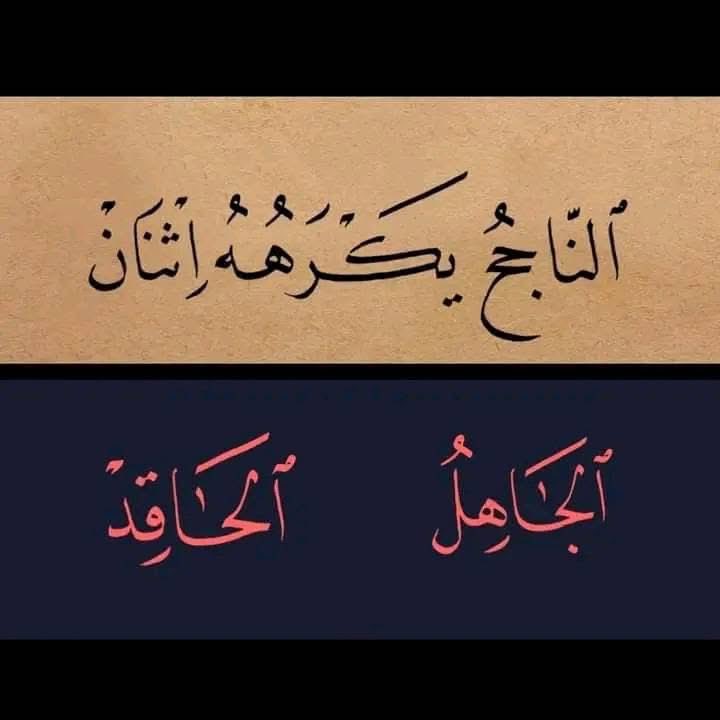 ٱلنَّاجحُ يكْرَهُهُ اِثْنَانْ
ٱلجَاهِلُ ٱلحَاقِدْ